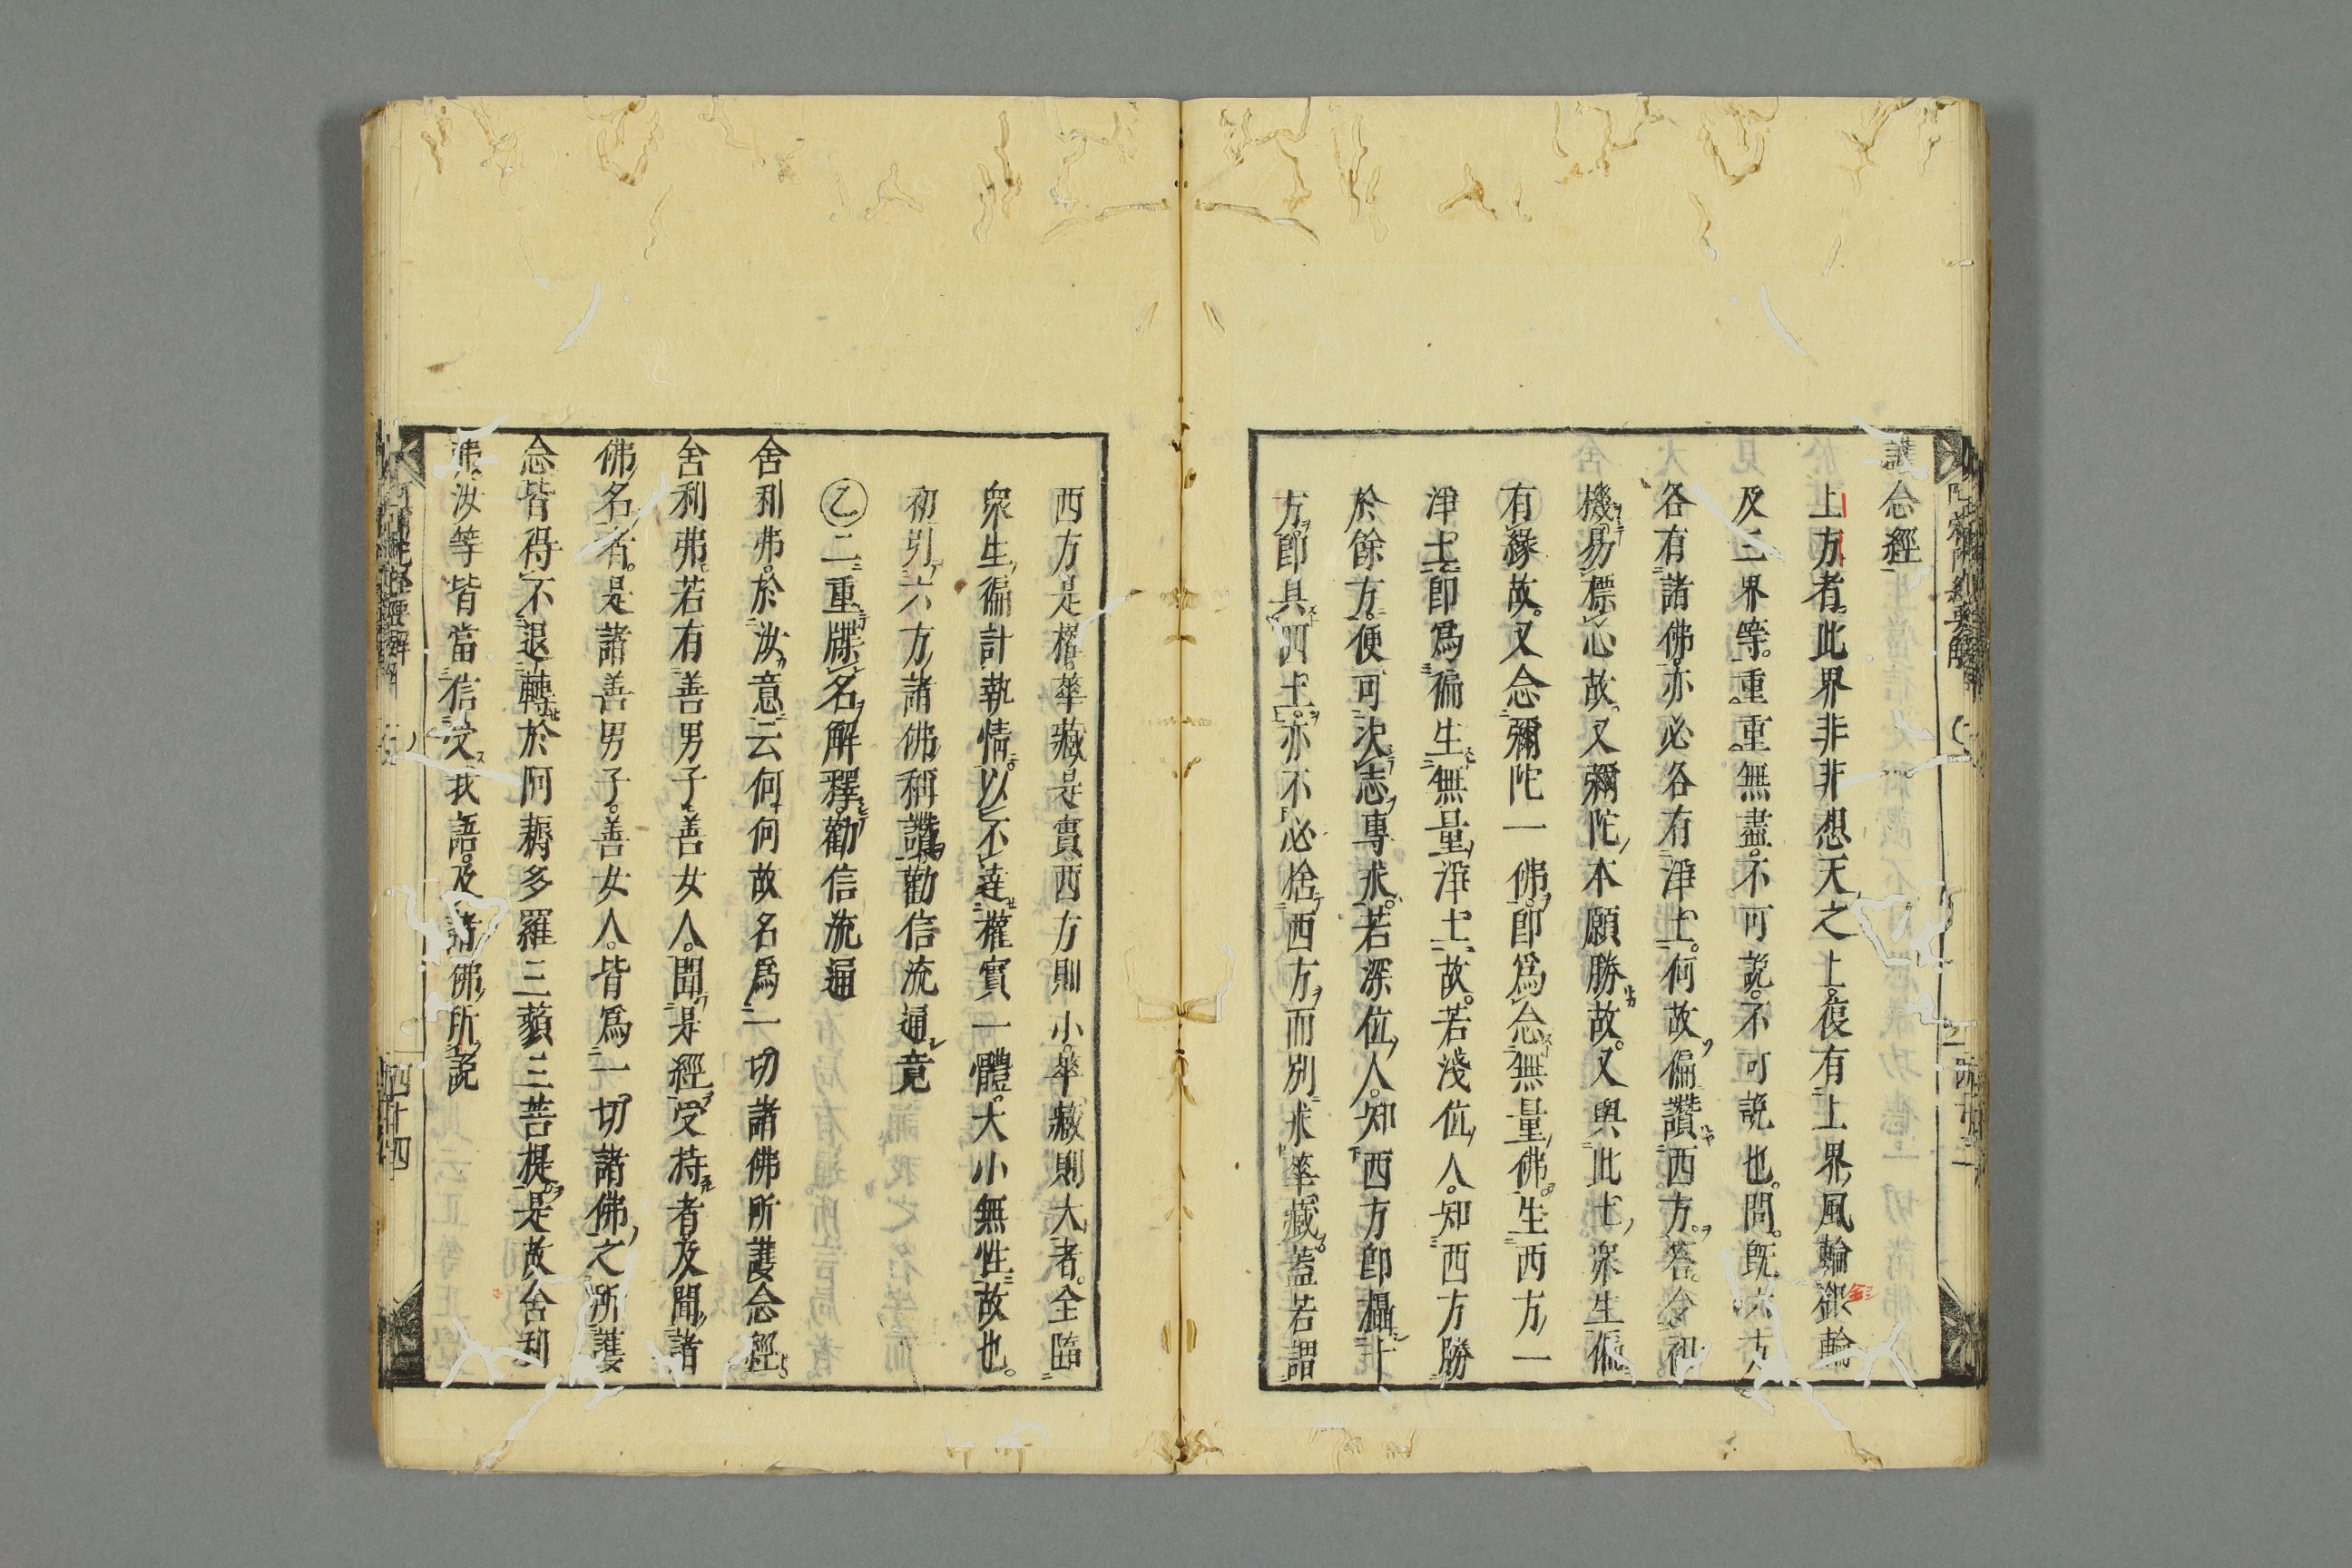 護念經
上方者。此界非非想天之上。復有上界。風輪銀輪
及三界等。重重無盡。不可說。不可說也。問。既六方
各有諸佛。亦必各有淨土。何故偏讚西方。答。令初
機易標心故。又彌陀本願勝故。又與此土眾生偏
有緣故。又念彌陀一佛。卽爲念無量佛。生西方一
淨土。卽爲徧生無量淨土故。若淺位人。知西方勝
於餘方。便可決志專求。若深位人。知西方卽攝十
方。卽具四土。亦不必捨西方。而別求華藏。蓋若謂
西方是權。華藏是實。西方則小。華藏則大者。全臨
眾生徧計執情。以不達權實一體。大小無性故也。
初引六方諸佛稱讚勸信流通竟
乙二重牒名解釋勸信流通
舍利弗。於汝意云何。何故名爲一切諸佛所護念經
舍利弗。若有善男子善女人。聞是經受持者。及聞諸
佛名者。是諸善男子。善女人。皆爲一切諸佛之所護
念。皆得不退轉於阿耨多羅三藐三菩提。是故舍利
弗。汝等皆當信受我語。及諸佛所說
四十四